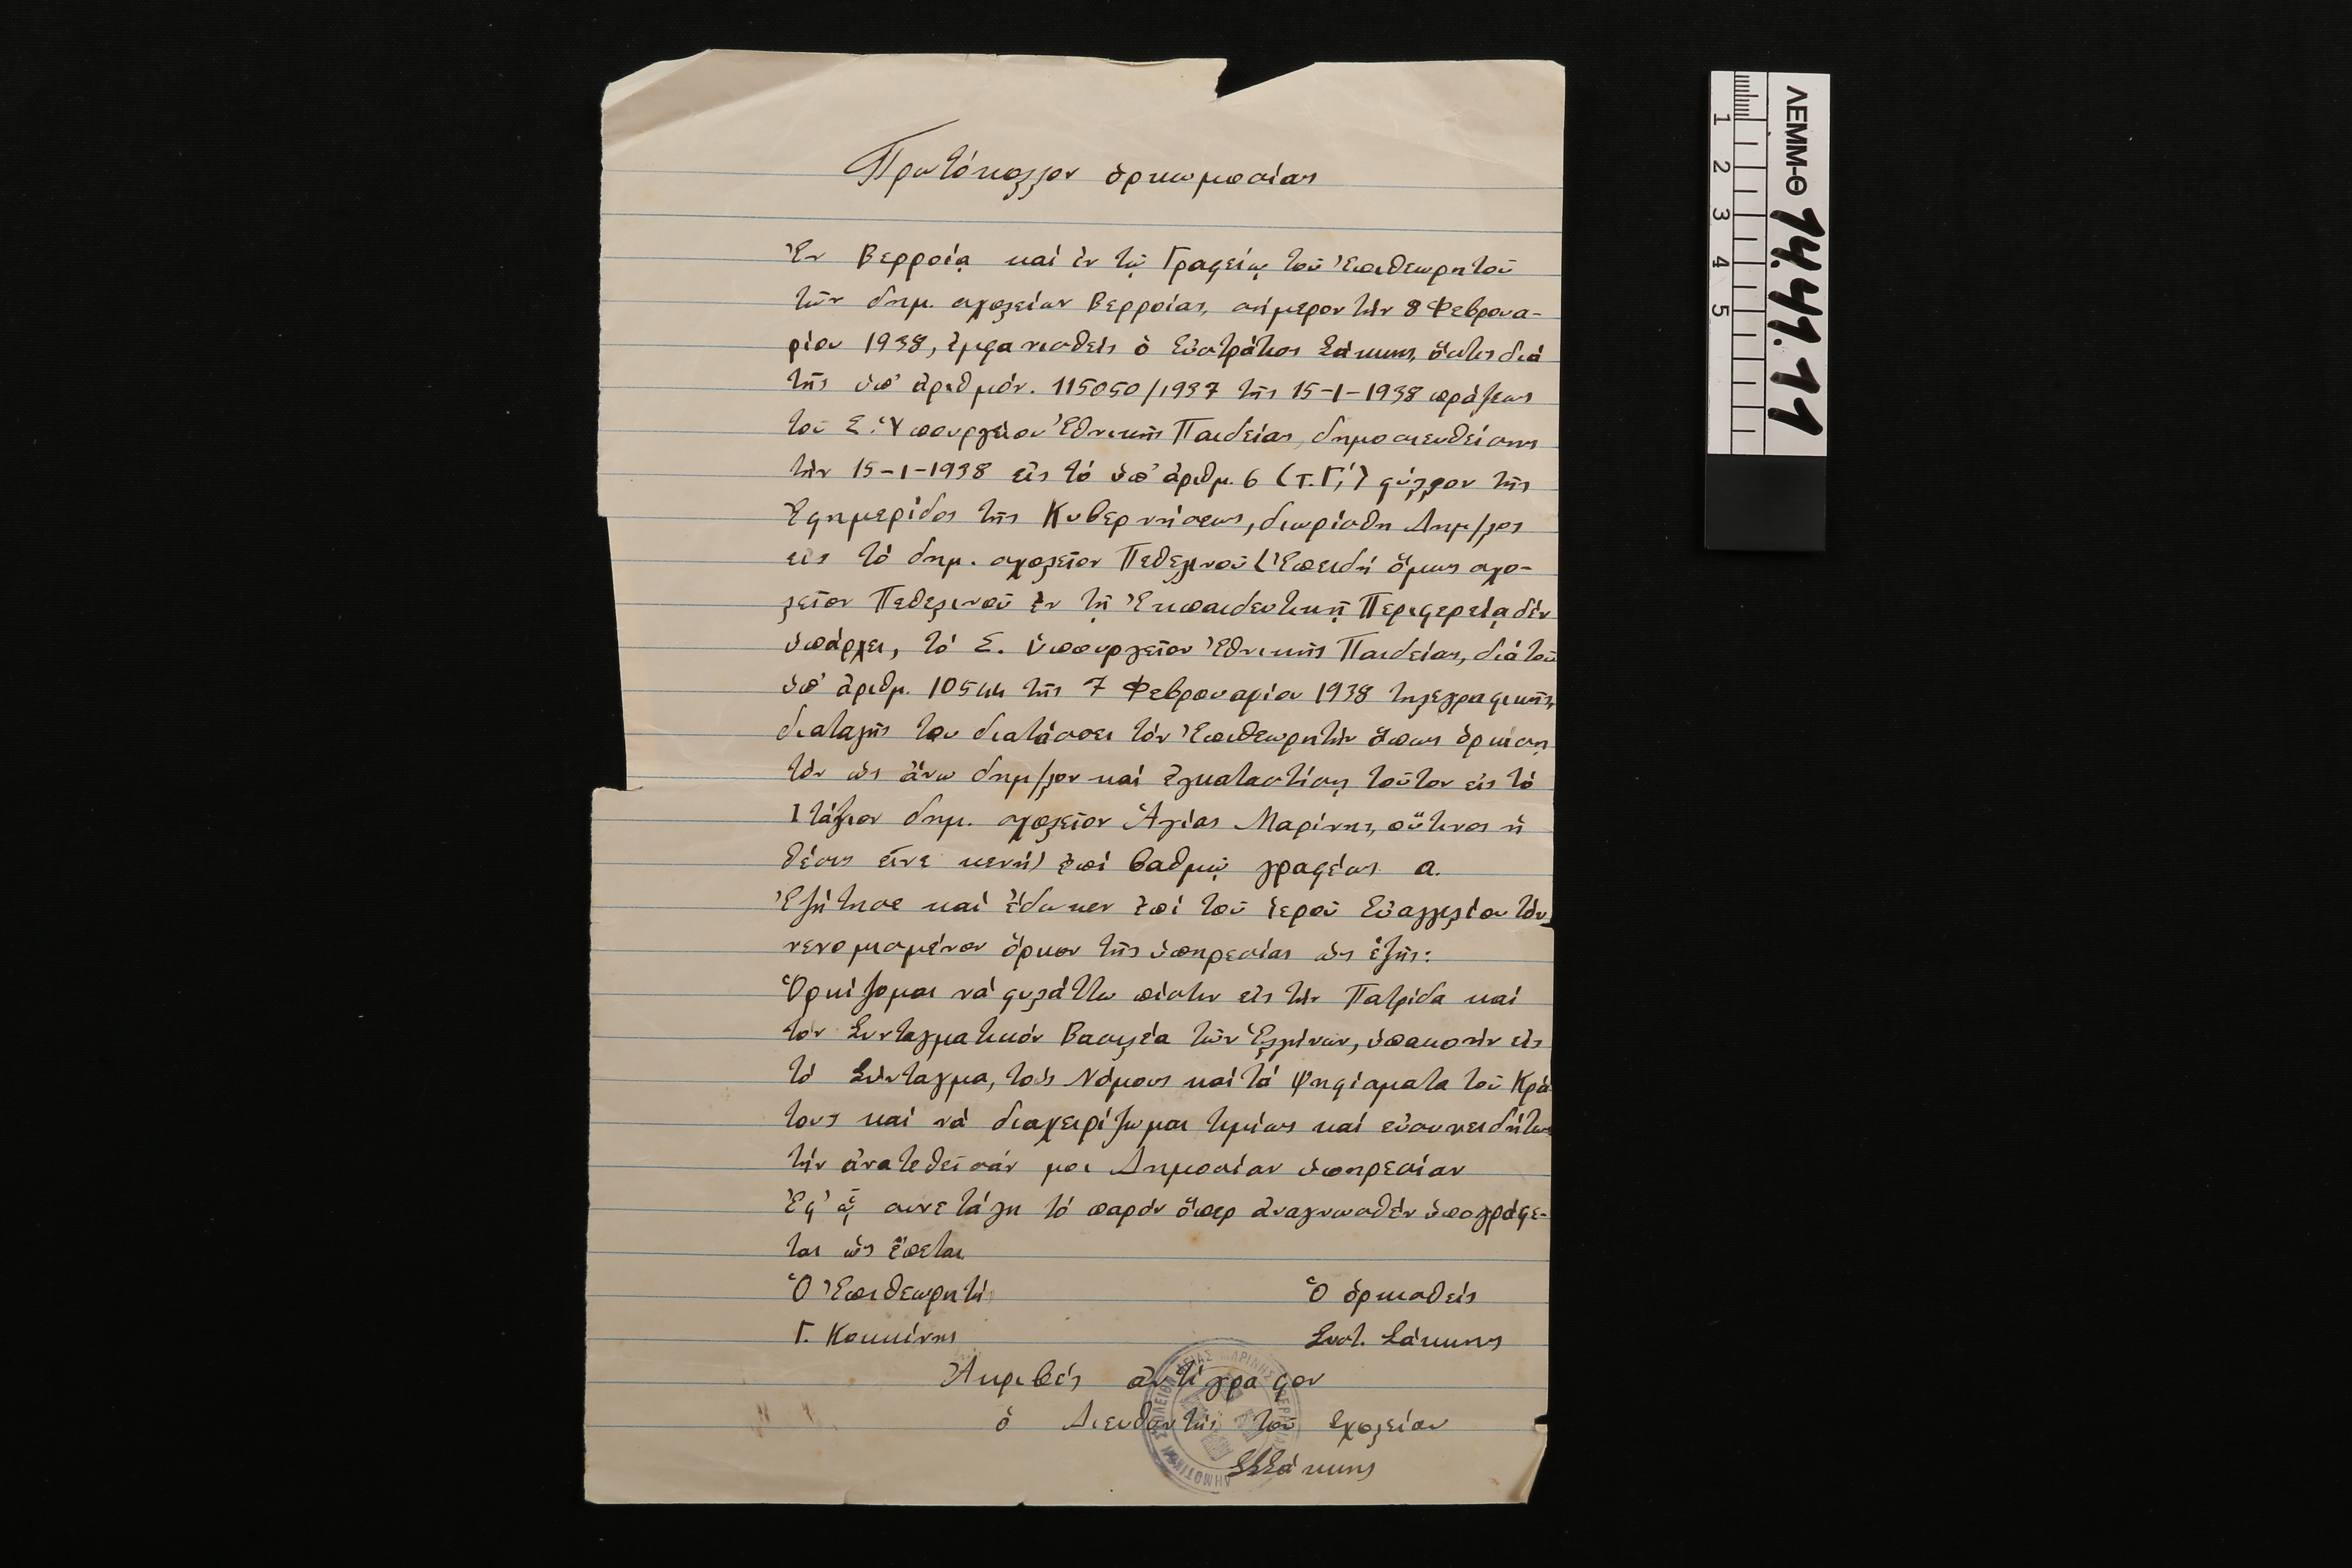 Πρωτόκολλον ὁρκωμοσίας
Ἐν Βερροίᾳ καί ἐν τῷ Γραφείῳ τοῦ Ἐπιθεωρητοῦ
τῶν δημ. σχολείων Βερροίας, σήμερον τήν 8 Φεβρουα-
ρίου 1938, ἐμφανισθείς ὁ Εὐστράτιος Σάκκης, ὅστις διά
τῆς ὑπ' ἀριθμόν. 115050/1937 τῆς 15-1-1938 πράξεως
τοῦ Σ. Ὑπουργείου Ἐθνικῆς Παιδείας, δημοσιευθείσης
τήν 15-1-1938 εἰς τό ὑπ' ἀριθμ. 6 (τ. Γ΄) φύλλον τῆς
Ἐφημερίδος τῆς Κυβερνήσεως, διωρίσθη Δημ/λος
εἰς τό δημ. σχολεῖον Πεθελινοῦ (Ἐπειδή ὅμως σχο-
λεῖον Πεθελινοῦ ἐν τῇ Ἐκπαιδευτικῇ Περιφερείᾳ δέν
ὑπάρχει, τό Σ. ὑπουργεῖον Ἐθνικῆς Παιδείας, διά τοῦ
ὑπ' ἀριθμ. 10544 τῆς 7 Φεβρουαρίου 1938 τηλεγραφικῆς
διαταγῆς του διατάσσει τόν Ἐπιθεωρητήν ὅπως ὁρκίσῃ
τόν ὡς ἄνω δημ/λον καί ἐγκαταστήσῃ τοῦτον εἰς τό
1 τάξιον δημ. σχολεῖον Ἁγίας Μαρίνης, οὗτινος ἡ
θέσις εἶνε κενή) ἐπί βαθμῷ γραφέως α.
Ἐζήτησε καί ἔδωκεν ἐπί τοῦ ἱεροῦ Εὐαγγελίου τόν
νενομισμένον ὅρκον τῆς ὑπηρεσίας ὡς ἑξῆς:
Ὁρκίζομαι νά φυλάττω πίστιν εἰς τήν Πατρίδα καί
τόν Συνταγματικόν Βασιλέα τῶν Ἑλλήνων, ὑπακοήν εἰς
τό Σύνταγμα, τούς Νόμους καί τά Ψηφίσματα τοῦ Κρά
τους καί νά διαχειρίζωμαι τιμίως καί εὐσυνειδήτως
τήν ἀνατεθεῖσάν μοι Δημοσίαν ὑπηρεσίαν
Ἐφ' ᾧ συνετάγη τό παρόν ὅπερ ἀναγνωσθέν ὑπογράφε-
ται ὡς ἕπεται
Ὁ Ἐπιθεωρητής Ὁ ὁρκισθείς
Γ. Κοκκίνης Ευστ. Σάκκης
Ἀκριβές ἀντίγραφον
ὁ Διευθυντής τοῦ Σχολείου
ΕΣάκκης
ΔΗΜΟΤΙΚΟΝ ΣΧΟΛΕΙΟΝ ΑΓΙΑΣ ΜΑΡΙΝΗΣ ΒΕΡΡΟΙΑΣ
ΛΕΜΜ-Θ
14.41.11
1 2 3 4 5